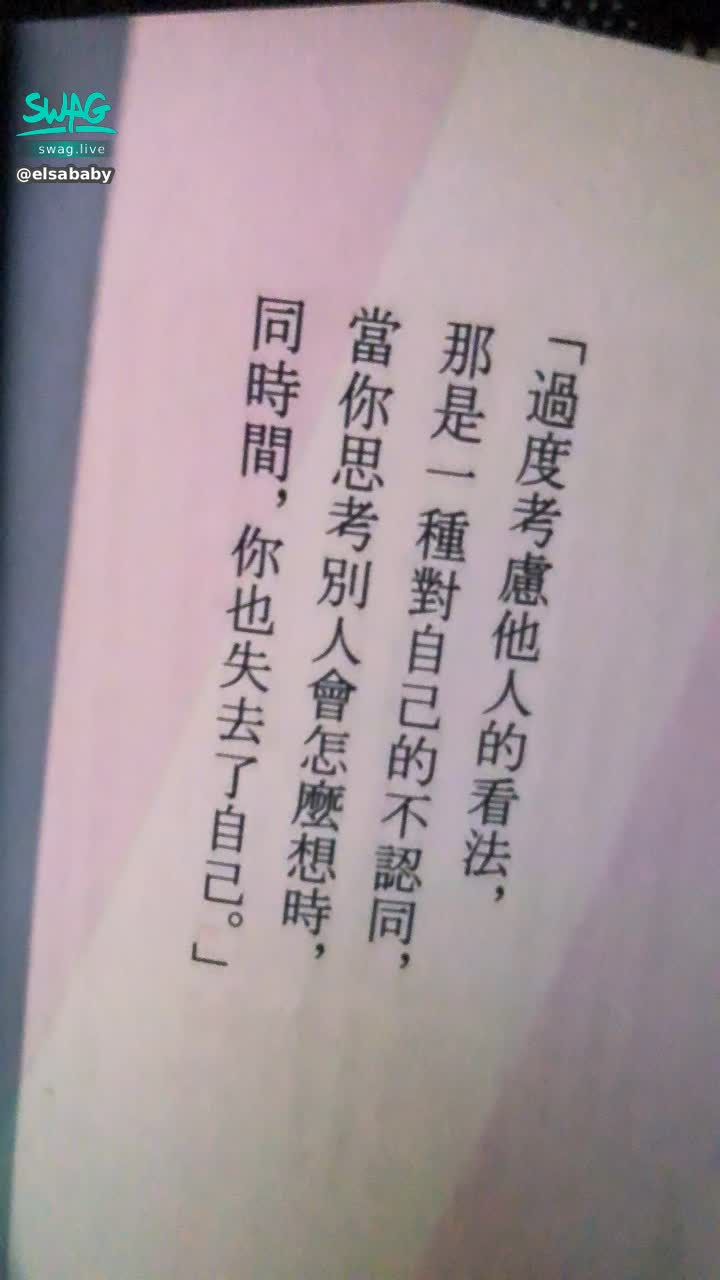 SWAG
swag.live
@elsababy
「過度考慮他人的看法，
那是一種對自己的不認同，
當你思考別人會怎麼想時，
同時間，你也失去了自己。」